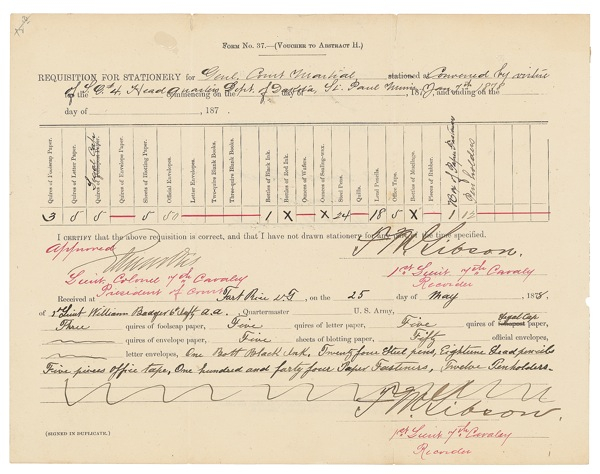 FORM NO. 37.—(VOUCHER TO ABSTRACT H.)
REQUISITION FOR STATIONERY for Genl. Court Martial, stationed at Convened by virtue
of S.O. 4, Head Quarters Dept. of Dakota, St. Paul Minn, Jany 7th 1878
the commencing on the day of , 187 , and ending on the
day of , 187 .
Quires of Foolscap Paper. Quires of Letter Paper. Legal Cap Quires of Envelope Paper. Sheets of Blotting Paper. Official Envelopes. Letter Envelopes. Two-quire Blank Books. Three-quire Blank Books. Bottles of Black Ink. Bottles of Red Ink. Ounces of Wafers. Ounces of Sealing-wax. Steel Pens. Quills. Lead Pencils. Office Tape. Bottles of Mucilage. Pieces of Rubber. Box of Paper Fasteners Penholders
3 5 5 5 50 1 X X 24 18 5 X 1 12
I CERTIFY that the above requisition is correct, and that I have not drawn stationery for any part of the time specified.
Approved
T. W. Gibson.
Lieut. Colonel 7th Cavalry
President of Court
1st Lieut 7th Cavalry
Recorder
Received at Fort Rice D.T., on the 25 day of May 1878,
of 2d Lieut William Badger 6 Inft A.A. Quartermaster U. S. Army,
Three quires of foolscap paper, Five quires of letter paper, Five quires of foolscap legal cap paper,
quires of envelope paper, Five sheets of blotting paper, Fifty official envelopes,
letter envelopes, One Bott Black Ink, Twenty four Steel pens, Eighteen Lead pencils
Five pieces Office Tape, One hundred and forty four Paper Fasteners, Twelve Penholders
T. W. Gibson.
1st Lieut 7th Cavalry
Recorder
(SIGNED IN DUPLICATE.)